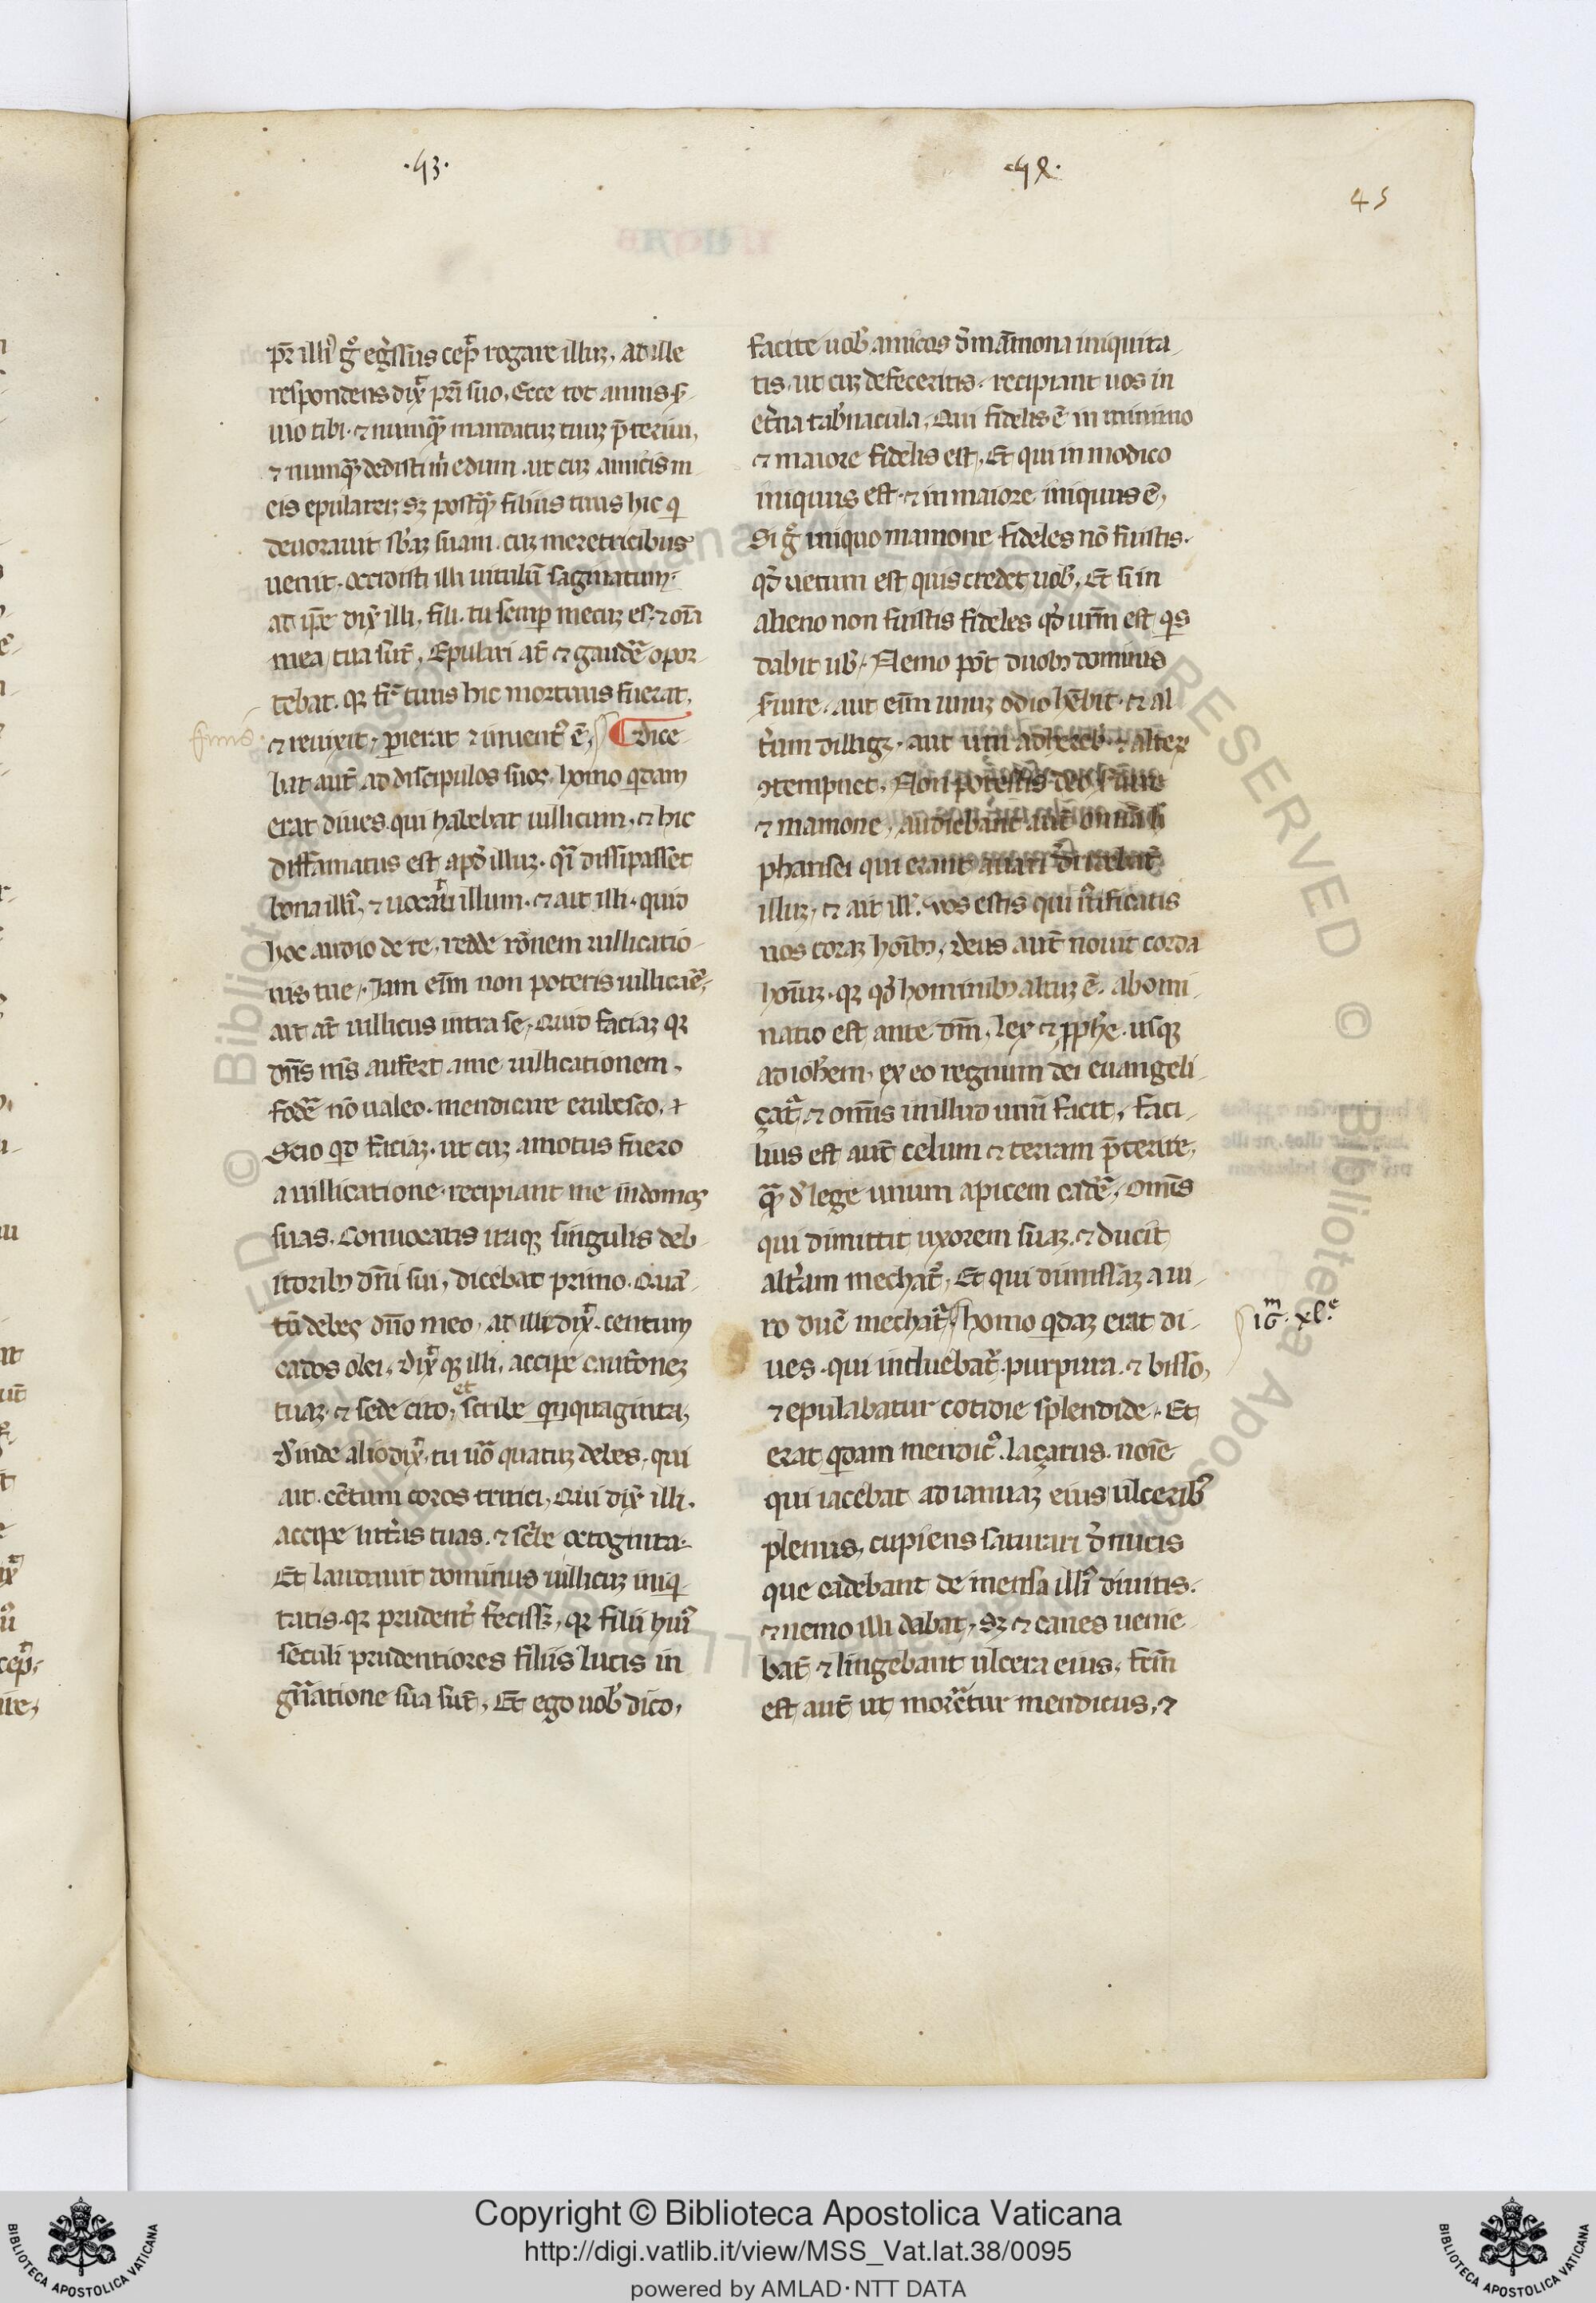 ·43·
·44·
45
pr̄ illiꝰ gͦ egr̄ssus cepͥt rogare illuꝫ, at ille
respondens dixͭ pr̄i suo, Ecce tot annis s̄-
uio tibi · ⁊ numqͣꝫ mandatuꝫ tuuꝫ p̄teriui,
⁊ numqͣꝫ dedisti m̄ edum · ut cuꝫ amicis m
eis epularer, sꝫ postqͣꝫ filius tuus hic qͥ
deuorauit sb̄aꝫ suam · cuꝫ meretricibus
uenit · occidisti illi uitulū saginatum ·
at ip̄e dix̄ illi, fili · tu semꝑ mecuꝫ es · ⁊ oīa
mea tua sūt, Epulari at̄ ⁊ gaudē opor-
tebat · qꝛ fr̄ tuus hic mortuus fuerat,
finis
⁊ reuixit, ꝑierat ⁊ inuentꝰ ē, Dice-
bat aut̄ ad discipulos suos, homo qͥdam
erat diues · qui habebat uillicum, ⁊ hic
diffamatus est apđ illuꝫ · qͣi dissipasset
bona illiꝰ, ⁊ uocauͭ illum · ⁊ ait illi · quid
hoc audio de te, redde rōnem uillicatio-
nis tue, Jam eīm non poteris uillicar̄,
ait at̄ uillicus intra se, Quid faciaꝫ qꝛ
dn̄s m̄s aufert a me uillicationem,
foder̄ nō ualeo · mendicare erubesco, ⁊
Scio qͥd faciaꝫ · ut cuꝫ amotus fuero
a uillicatione · recipiant me in domos
suas, Conuocatis itaqꝫ singulis deb-
itoribꝫ dn̄i sui, dicebat primo · Quā-
tū debes dn̄o meo, at ille dixͭ · centum
cados olei, dixͭqꝫ illi, accipe cautioneꝫ
et
tuaꝫ · ⁊ sede cito, scribe qͥnquaginta,
d̄inde alio dixͭ · tu uō quātuꝫ debes, qui
ait · centum coros tritici, Qui dix̄ illi ·
accipe litt̄as tuas · ⁊ sc̄be octoginta ·
Et laudauit dominus uillicuꝫ iniqͥ-
tatis · qꝛ prudent̄ fecissꝫ, qꝛ filii huiꝰ
seculi prudentiores filiis lucis in
gn̄atione sua sūt, Et ego uob̄ dico,
facite uob̄ amicos d̄ māmona iniquita-
tis · ut cuꝫ defeceritis · recipiant uos in
et̄na tab̄nacula, Qui fidelis ē in minimo
⁊ maiore fidelis est, Et qui in modico
iniquus est · ⁊ in maiore iniquus ē,
Si gͦ iniquo mamone fideles nō fuistis ·
qđ uerum est quis credet uob̄, Et si in
alieno non fuistis fideles qđ ur̄m est qͥs
dabit uob̄ · Nemo pōt duobꝫ dominis
s̄uire · aut eīm unuꝫ odio hēbit · ⁊ al
t̄um diligꝫ · aut uni adhereb · ⁊ alteꝝ
ꝯtempnet, Non potestis deo s̄uire
⁊ mamone, audiebant aut̄ omīa h̄
pharisei qui erant auari
illuꝫ, ⁊ ait ill̄ · Vos estis qui iustificatis
uos coraꝫ hoībꝫ, deus aut̄ nouit corda
ur̄a, qꝛ qđ hominibꝫ altuꝫ ē · abomi-
natio est ante dm̄, lex ⁊ ꝓph̄e · usqꝫ
ad ioh̄em, ex eo regnum dei euangeli-
çatͬ ⁊ omīs in illud uim̄ facit, faci-
lius est aut̄ celum ⁊ terram p̄terire,
qͣꝫ d̄ lege unum apicem cader̄, Omīs
qui dimittit uxorem suaꝫ · ⁊ ducit
alt̄am mechatͬ, Et qui dimissaꝫ a ui-
ro duc̄ mechatͬ homo qͥdaꝫ erat di-
iō · xlͤ ·
ues · qui induebatͬ · purpura · ⁊ bisso,
⁊ epulabatur cotidie splendide · Et
erat qͥdam mendicꝰ · laçarus · noīe
qui iacebat ad ianuaꝫ eius ulceribꝰ
plenus, cupiens saturari d̄ micis
que cadebant de mensa illiꝰ diuitis ·
⁊ nemo illi dabat, Sꝫ ⁊ canes uenie-
bāt ⁊ lingebant ulcera eius, fc̄m
est aut̄ ut morēetur mendicus, ⁊
Copyright © Biblioteca Apostolica Vaticana
http://digi.vatlib.it/view/MSS_Vat.lat.38/0095
powered by AMLAD·NTT DATA
BIBLIOTECA APOSTOLICA VATICANA
BIBLIOTECA APOSTOLICA VATICANA